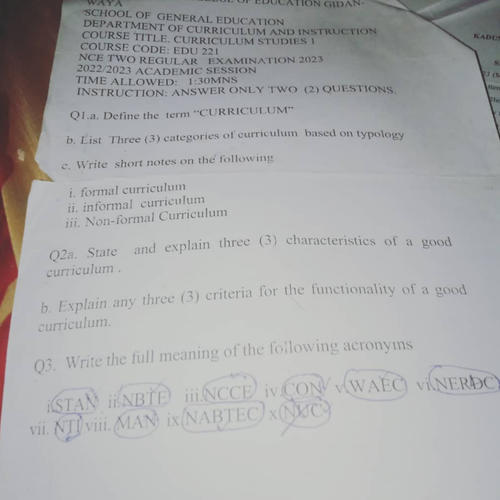 OF EDUCATION GIDAN-
WAYA
SCHOOL OF GENERAL EDUCATION
DEPARTMENT OF CURRICULUM AND INSTRUCTION
COURSE TITLE. CURRICULUM STUDIES 1
COURSE CODE: EDU 221
NCE TWO REGULAR EXAMINATION 2023
2022/2023 ACADEMIC SESSION
TIME ALLOWED: 1:30MNS
INSTRUCTION: ANSWER ONLY TWO (2) QUESTIONS.
Q1.a. Define the term “CURRICULUM”
b. List Three (3) categories of curriculum based on typology
c. Write short notes on the following
i. formal curriculum
ii. informal curriculum
iii. Non-formal Curriculum
Q2a. State and explain three (3) characteristics of a good
curriculum .
b. Explain any three (3) criteria for the functionality of a good
curriculum.
Q3. Write the full meaning of the following acronyms
i.STAN ii.NBTE iii.NCCE iv.CON v.WAEC vi.NERDC
vii. NTI viii. MAN ix.NABTEC x.NUC
KADUN